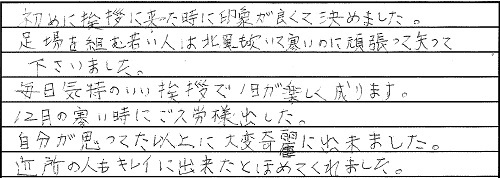 初めに挨拶に来った時に印象が良くて決めました。
足場を組む若い人は北風吹いて寒いのに頑張って矢って
下さいました。
毎日気持のいい挨拶で1日が楽しく成ります。
12月の寒い時にご久労様出した。
自分が思ってた以上に大変奇麗に出来ました。
近所の人もキレイに出来たとほめてくれました。